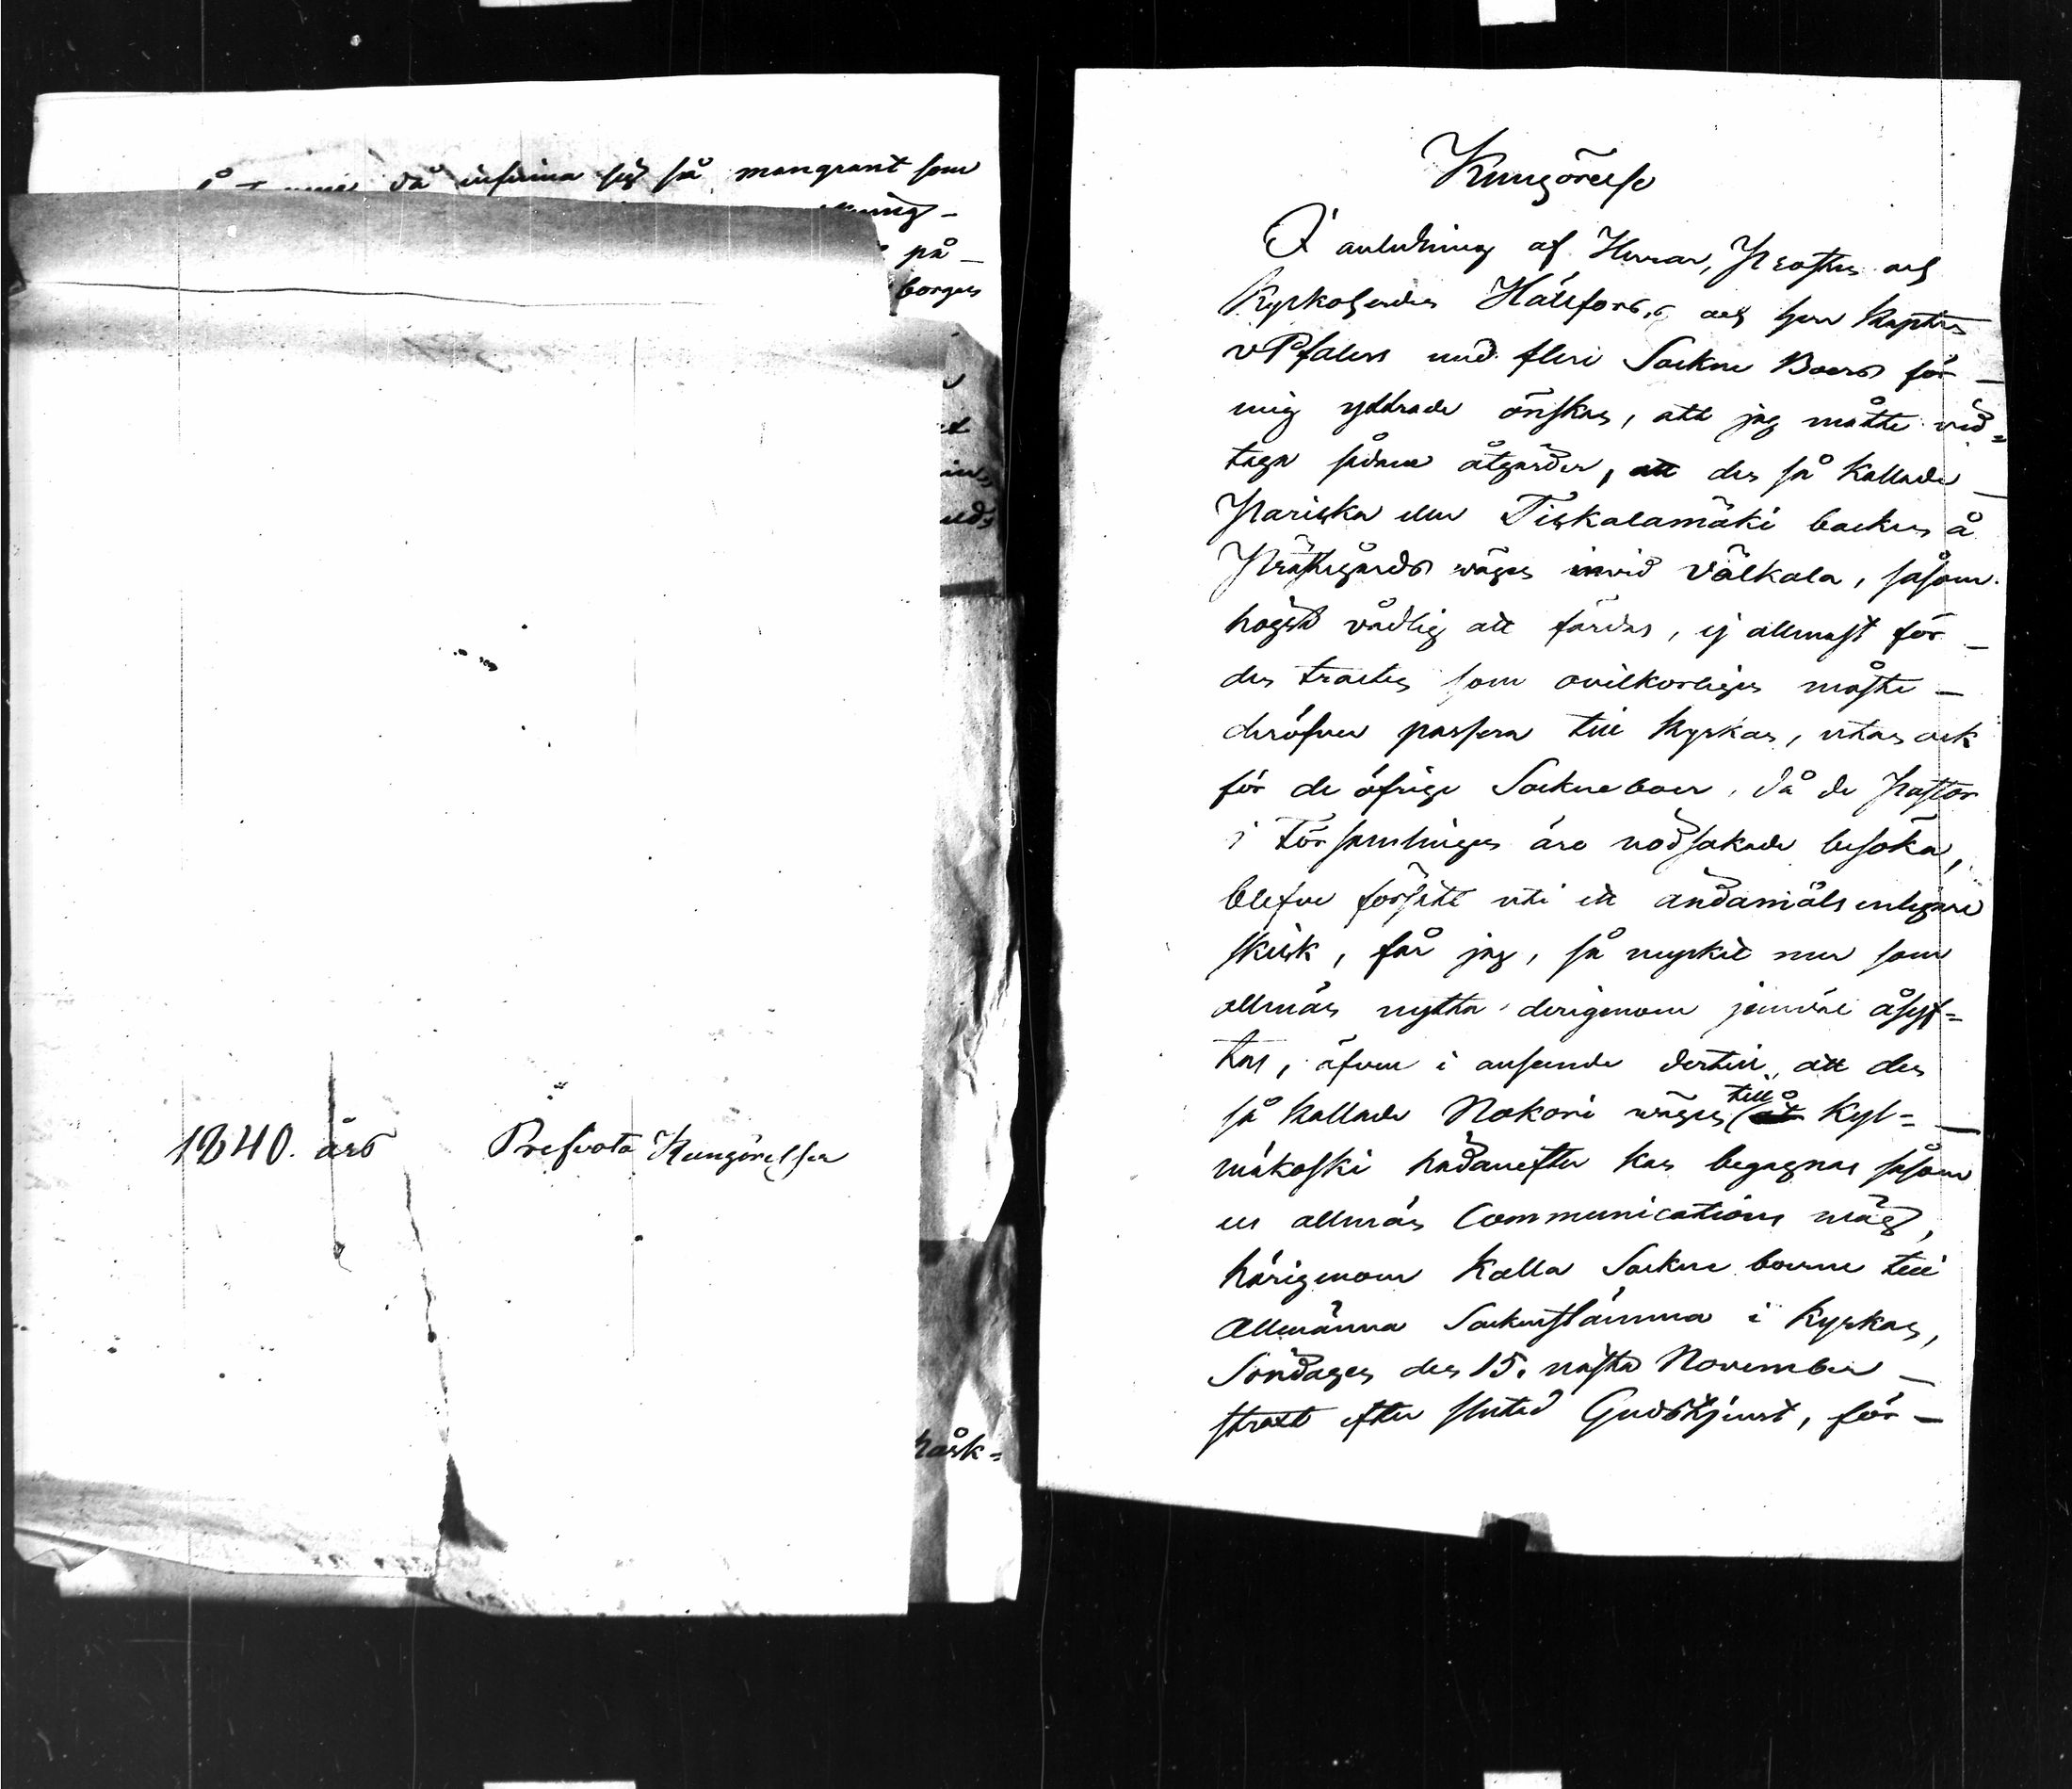 då infinna sig så mangrant som
på
borgas
håsk=
1840. års Prefvata Kungörelser
Kungörelse
I anledning af Herrar, Prosten och
Kyrkoherden Hällfors, och herr Kapten
v Pfaler med flere Sockne Boers för
mig yttrade önskan, att jag måtte vid=
taga sådane åtgärder, att den så kallade
Pariska eller Tiskalamäki backen å
Prästegårds vägen invid Välkala, såsom
högst vådlig att färdas, ej allenast för
den tracten som ovilkorligen måste
deröfver passera till Kyrkan, utan ock
för de öfrige Sockneboer, då de Pastor
i Församlingen äro nödsakade besöka,
blefve försatt uti ett ändamålsenligare
skick, får jag, så mycket mer som
allmän nytta derigenom jemväl åsyf=
tas, äfven i anseende dertill, att den
så kallade Nokori vägen till Kyl=
mäkoski hädanefter kan begagnas såsom
en allmän Communications väg,
härigenom kalla Sockne boerne till
Allmänna Sockenstämma i Kyrkan,
Söndagen den 15. nästa November
straxt efter slutad Gudstjenst, för